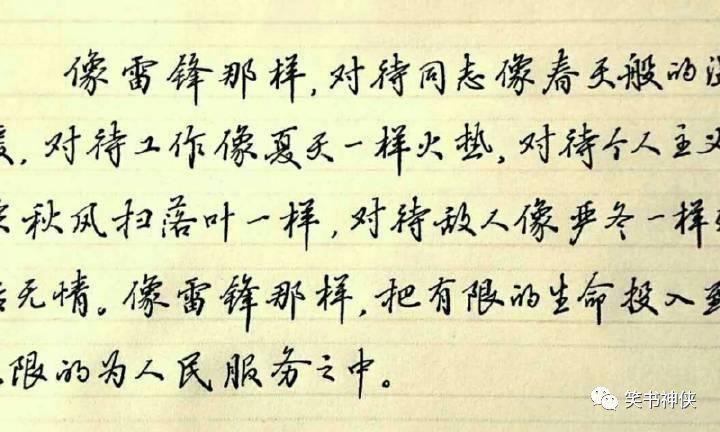 像雷锋那样,对待同志像春天般的
,对待工作像夏天一样火热,对待个人主义
秋风扫落叶一样,对待敌人像严冬一样
无情。像雷锋那样,把有限的生命投入
限的为人民服务之中。
笑书神侠